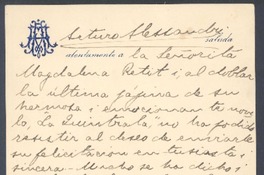 Arturo Alessandri
saluda
atentamente a la Señorita
Magdalena Petit i al doblar
la última pájina de su
hermosa i emocionante nove
la La Quintrala" no ha podido
resistir al deseo de enviarle
su felicitacion entusiasta i
sincera. Mucho se ha dicho i